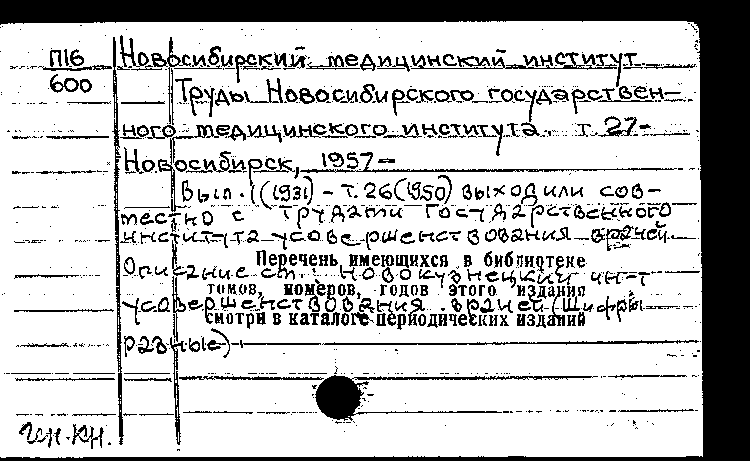 П16 Новосибирский медицинский институт
600 Труды Новосибирского государствен-
ного медицинского института. т. 27-
Новосибирск, 1957-
Вып. 1 (1931) - т. 26 (1950) выходили сов-
местно с Трудами Государственного
института усовершенствования врачей.
Перечень имеющихся в библиотеке
Описание см.: Новокузнецкий ин-т
томов, номеров, годов этого издания
усовершенствования врачей (Шифры
смотри в каталоге периодических изданий
разные).
Ин. кн.